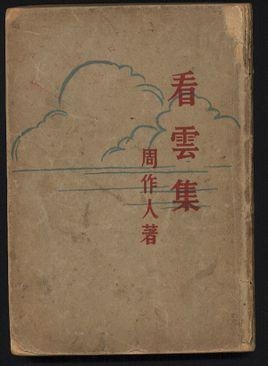 看雲集
周作人著